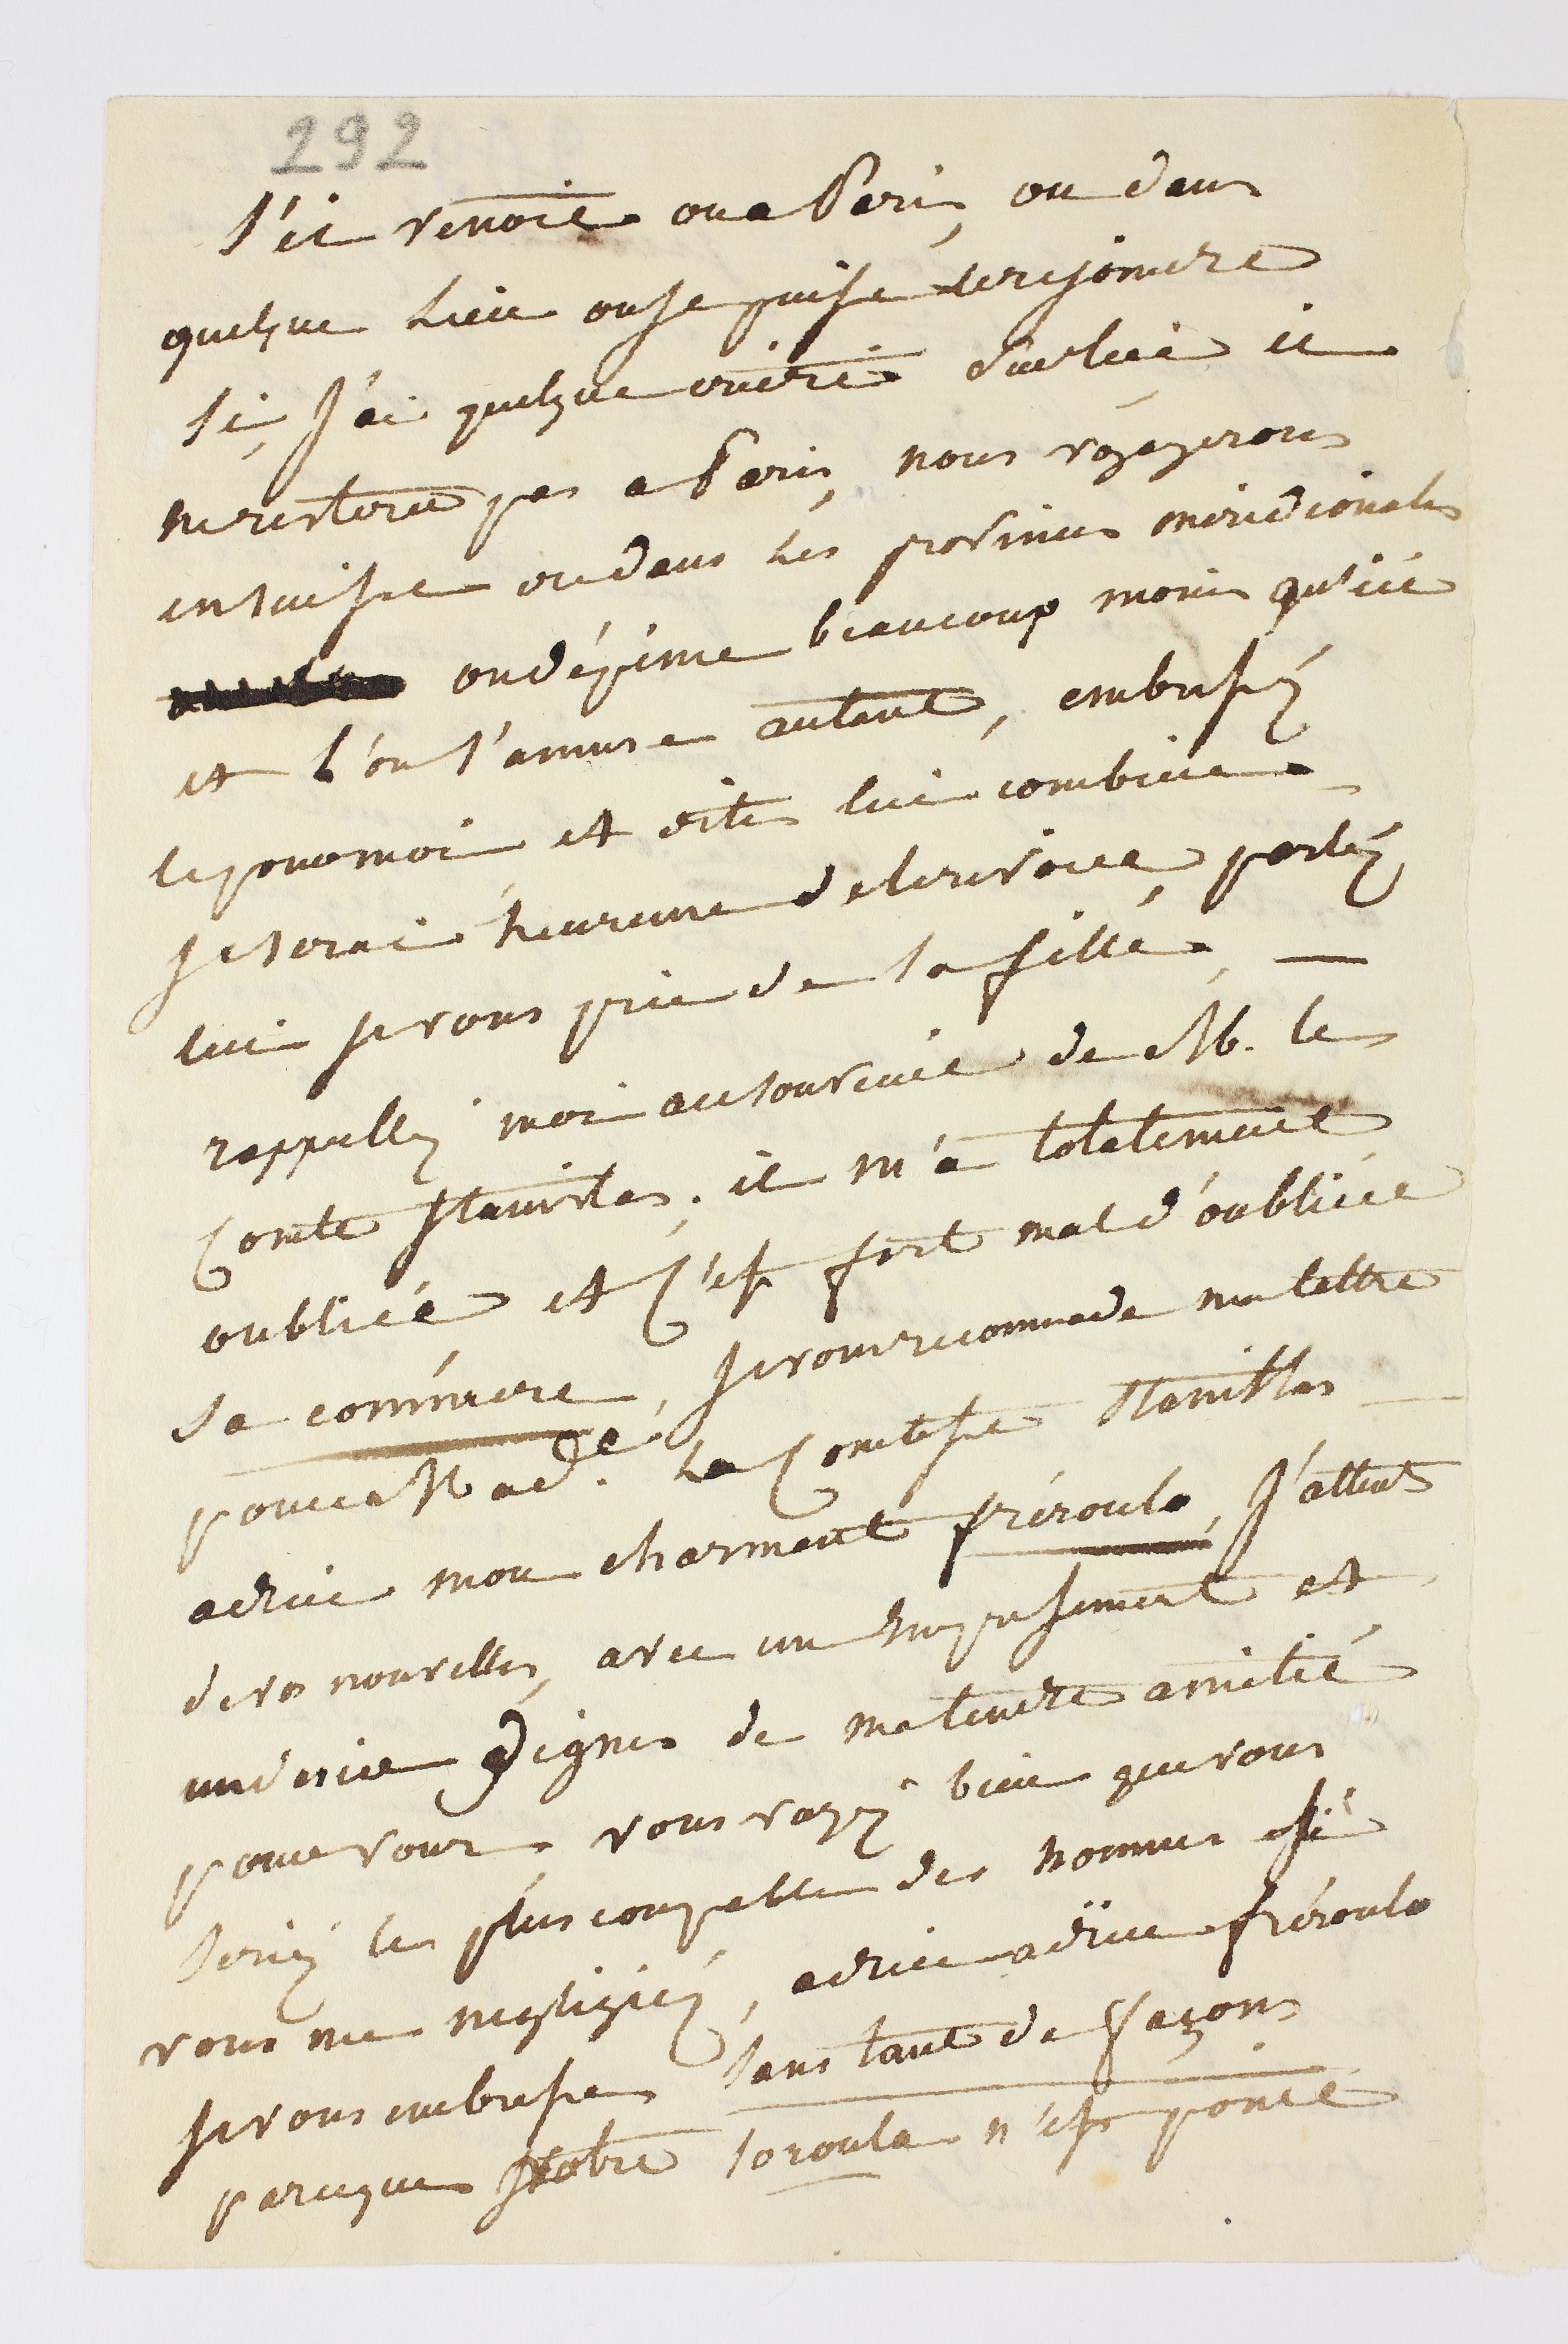 292
s'il venoit ou a Paris, ou dans
quelque lieu ou je puisse le rejoindre
si, j'ai quelque crédit sur lui il
ne restera pas a Paris, nous voyagerons
en suisse ou dans les provinces méridionales
on dépense beaucoup moins qu'ici
et l'on s'amuse autant, embrassés
le pour moi et dites lui combien
je serai heureuse de le revoir, parlés
lui je vous prie de sa fille, —
rappellés moi au souvenir de M. le
Comte stanislas, il m'a totalement
oubliée, et c'est fort mal d'oublier
sa commère, je vous recommande ma lettre
pour Made. la Comtesse stanislas —
adieu mon charmant fréroula, j'attens
de vos nouvelles, avec un empressement et
un desir dignes de ma tendre amitié
pour vous, vous voyés bien que vous
seriés le plus coupable des hommes si
vous me negligiés, adieu adieu fréroula
je vous embrasse sans tant de façons
parceque votre soroula n'est point